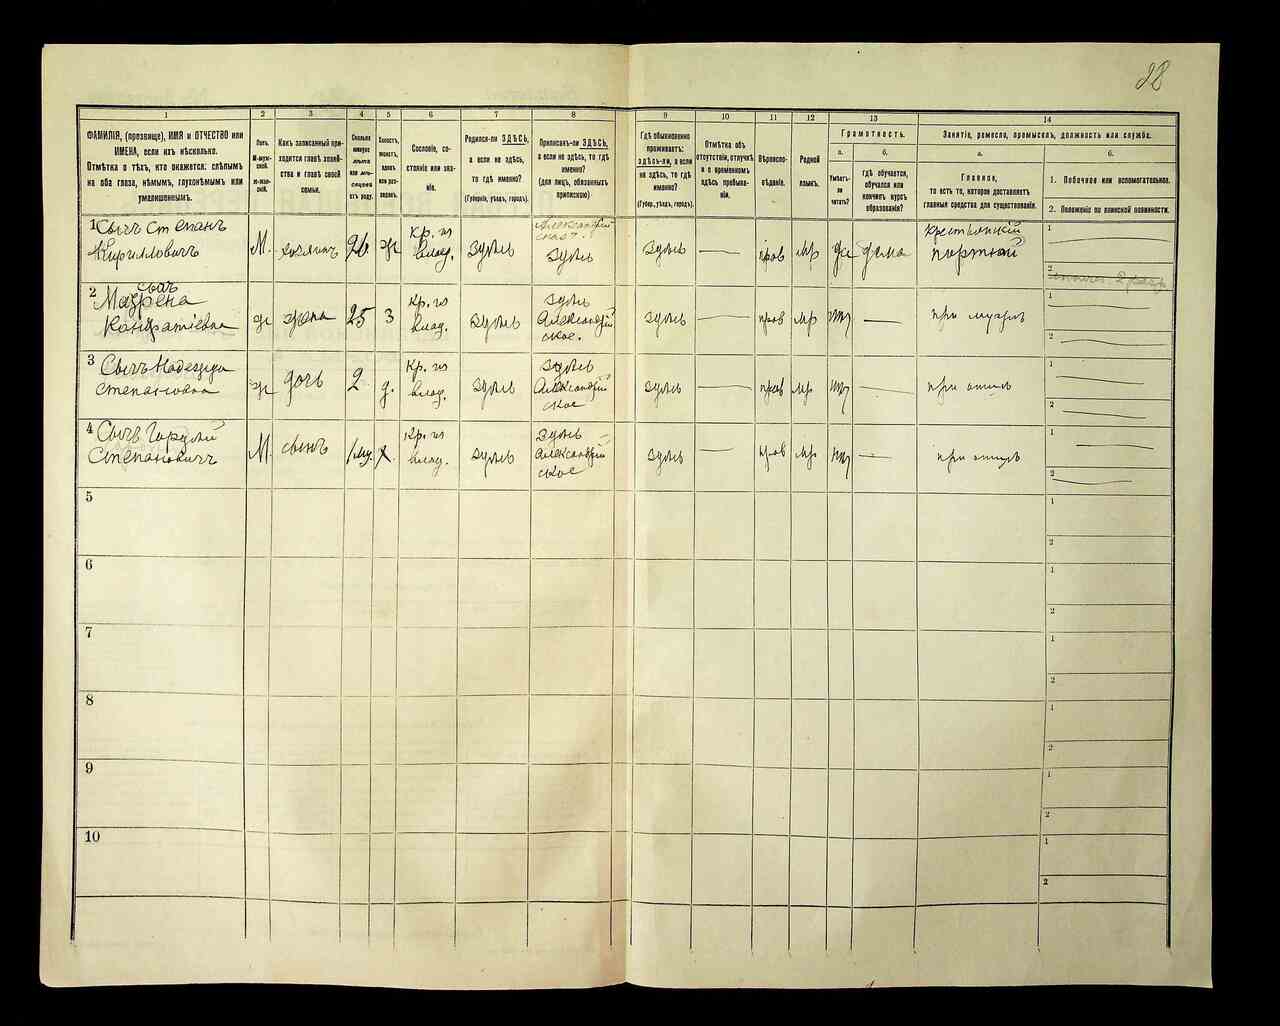 28
1
2
3
4
5
6
7
8
9
10
11
12
13
14
ФАМИЛІЯ, (прозвище), ИМЯ и ОТЧЕСТВО или
ИМЕНА, если ихъ нѣсколько.
Отмѣтка о тѣхъ, кто окажется: слѣпымъ
на оба глаза, нѣмымъ, глухонѣмымъ или
умалишеннымъ.
Полъ.
М-муж-
ской.
Ж-жен-
скій.
Какъ записанный при-
ходится главѣ хозяй-
ства и главѣ своей
семьи.
Сколько
минуло
лѣтъ
или мѣ-
сяцевъ
отъ роду.
Холостъ,
женатъ,
вдовъ
или раз-
веденъ.
Сословіе, со-
стояніе или зва-
ніе.
Родился-ли ЗДѢСЬ,
а если не здѣсь,
то гдѣ именно?
(Губернія, уѣздъ, городъ).
Приписанъ-ли ЗДѢСЬ,
а если не здѣсь, то гдѣ
именно?
(для лицъ, обязанныхъ
припискою)
Гдѣ обыкновенно
проживаетъ:
ЗДѢСЬ-ЛИ, а если
не здѣсь, то гдѣ
именно?
(Губер., уѣздъ, городъ).
Отмѣтка объ
отсутствіи, отлучкѣ
и о временномъ
здѣсь пребыва-
ніи.
Вѣроиспо-
вѣданіе.
Родной
языкъ.
Грамотность.
а.
Умѣетъ-
ли
читать?
б.
гдѣ обучается,
обучался или
кончилъ курсъ
образованія?
Занятіе, ремесло, промыселъ, должность или служба.
а.
Главное,
то есть то, которое доставляетъ
главныя средства для существованія.
б.
1. Побочное или вспомогательное.
2. Положеніе по воинской повинности.
1 Сычъ Степанъ
Кирилловичъ
М.
хозяинъ
26
ж
Кр. из
влад.
здѣсь
здѣсь
здѣсь
—
прав
мр
да
дома
крестьянскій
портной
1
2
2 Сычъ
Мазрена
Кондратіевна
ж
жена
25
З
Кр. из
влад.
здѣсь
здѣсь
Александрій
ское.
здѣсь
—
прав
мр
—
при мужѣ
1
2
3 Сычъ Надежда
Степановна
ж
дочь
2
д.
Кр. из
влад.
здѣсь
здѣсь
Александрій
ское
здѣсь
—
прав
мр
—
при отцѣ
1
2
4 Сычъ Гордѣй
Степановичъ
М
сынъ
х
Кр. из
влад.
здѣсь
здѣсь
Александрій
ское
здѣсь
—
прав
мр
—
при отцѣ
1
2
5
1
2
6
1
2
7
1
2
8
1
2
9
1
2
10
1
2